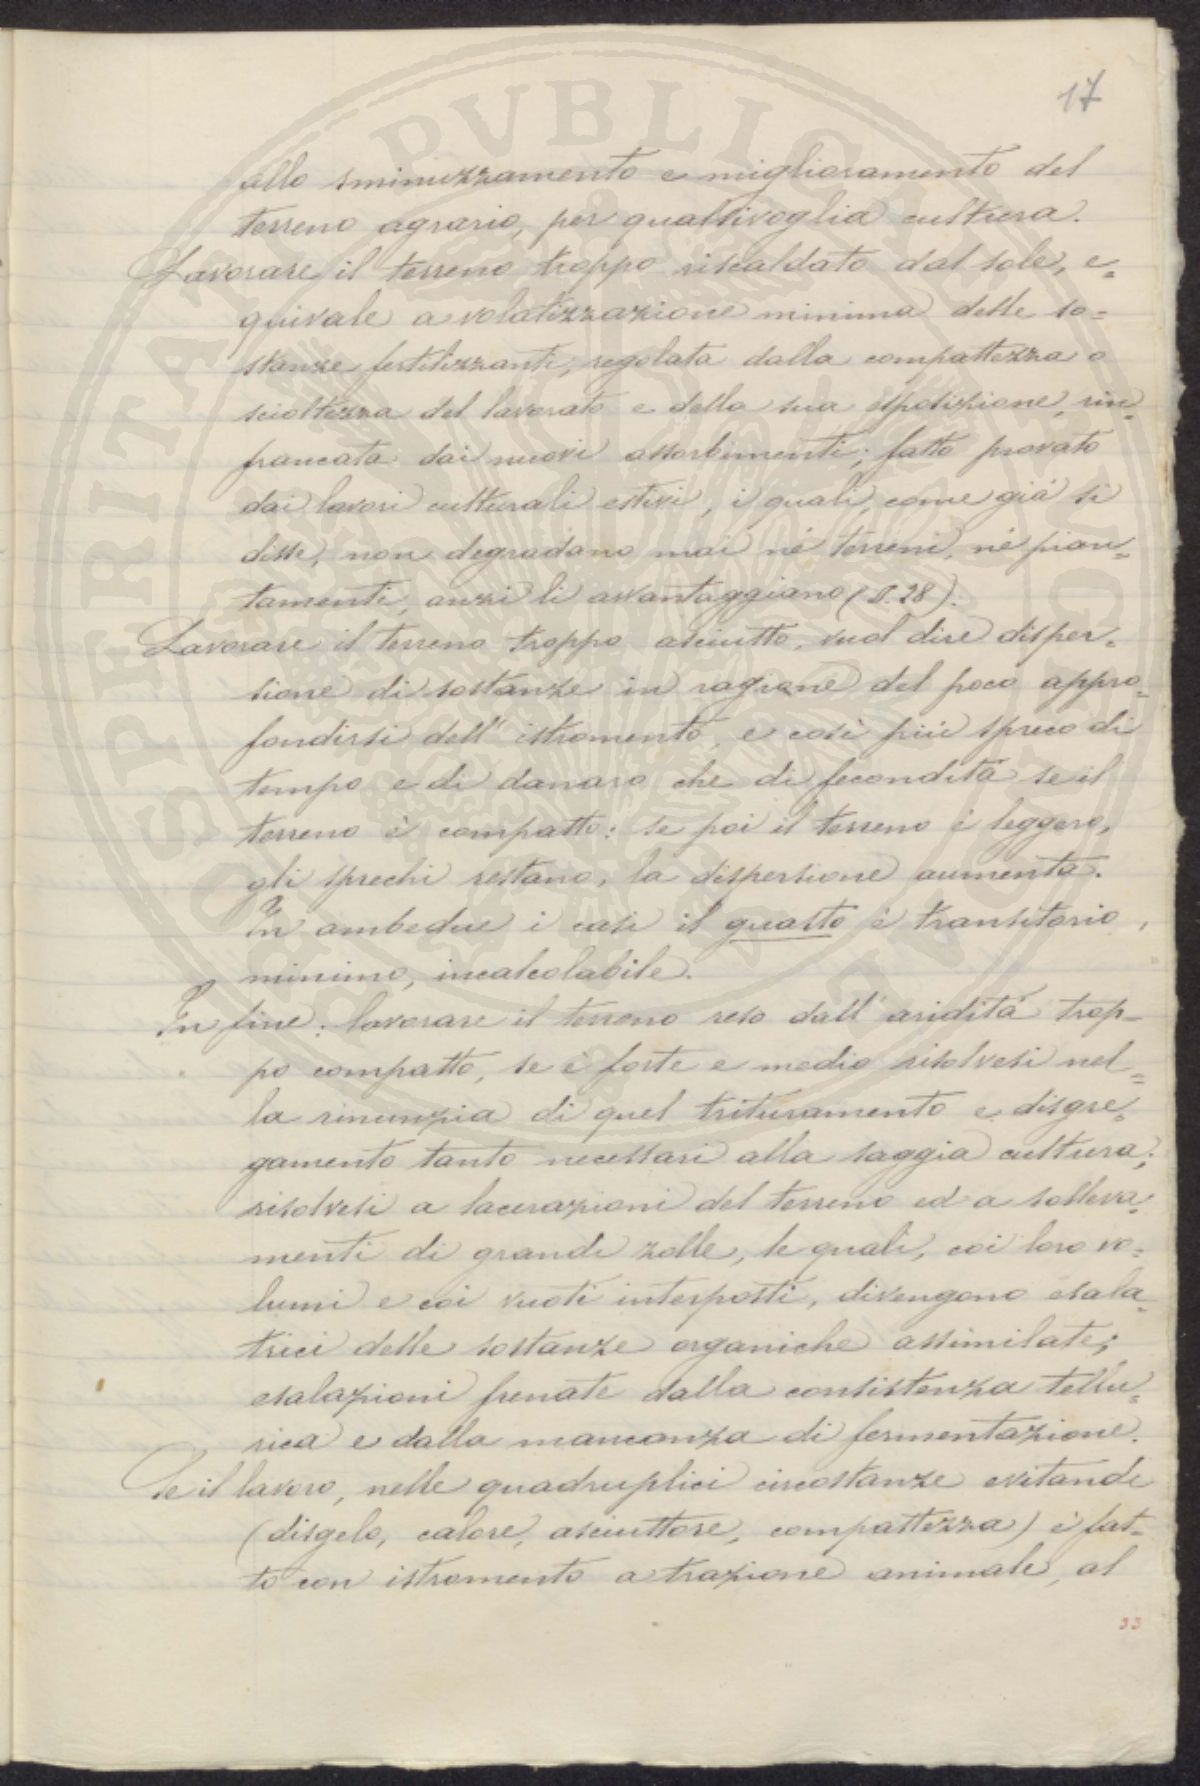 17
allo sminuzzamento e miglioramento del
terreno agrario, per qualsivoglia cultura.
Lavorare il terreno troppo riscaldato dal sole, e=
quivale a volatizzazione minima delle so=
stanze fertilizzanti, regolata dalla compattezza o
scioltezza del lavorato e della sua esposizione, rin=
francata dai nuovi assorbimenti; fatto provato
dai lavori culturali estivi, i quali, come già si
disse, non degradano mai nè terreni, nè pian=
tamenti, anzi li avantaggiano (P. 28).
Lavorare il terreno troppo asciutto, vuol dire disper=
sione di sostanze in ragione del poco appro=
fondirsi dell'istromento, e così più spreco di
tempo e di danaro che di fecondità se il
terreno è compatto: se poi il terreno è leggero,
gli sprechi restano, la dispersione aumenta.
In ambedue i casi il guasto è transitorio,
minimo, incalcolabile.
In fine: lavorare il terreno reso dall'aridità trop=
po compatto, se è forte e medio risolvesi nel=
la rinunzia di quel trituramento e disgre=
gamento tanto necessari alla saggia cultura;
risolvesi a lacerazioni del terreno ed a solleva=
menti di grandi zolle, le quali, coi loro vo=
lumi e coi vuoti interposti, divengono esala=
trici delle sostanze organiche assimilate;
esalazioni frenate dalla consistenza tellu=
rica e dalla mancanza di fermentazione.
Se il lavoro, nelle quadruplici circostanze evitande
(disgelo, calore, asciuttore, compattezza) è fat=
to con istromento a trazione animale, al
33
PROSPERITATI PVBLICAE